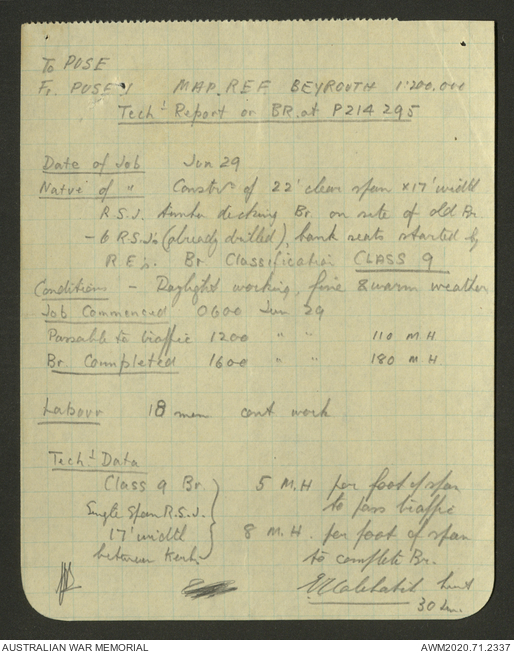 To POSE
Fr. POSE 1 MAP. REF BEYROUTH 1:200.000
Tech'l Report on BR. at P214295
Date of Job Jun 29
Natre of " Constrn of 22' clear span x 17' width
R.S.J. timber decking Br. on site of old Br.
- 6 R.S.J's (already drilled), bank seats started by
R E's. Br Classification CLASS 9
Conditions - Daylight working, fine & warm weather
Job Commenced 0600 Jun 29
Passable to traffic 1200 " " 110 M.H
Br. Completed 1600 " " 180 M.H
Labour 18 men cont work
Tech'l Data
Class 9 Br. 5 M.H per foot of span
Single Span R.S.J. to pass traffic
17' width 8 M.H. per foot of span
between Kerbs to complete Br.
Lieut
30 Jun.
AUSTRALIAN WAR MEMORIAL AWM2020.71.2337